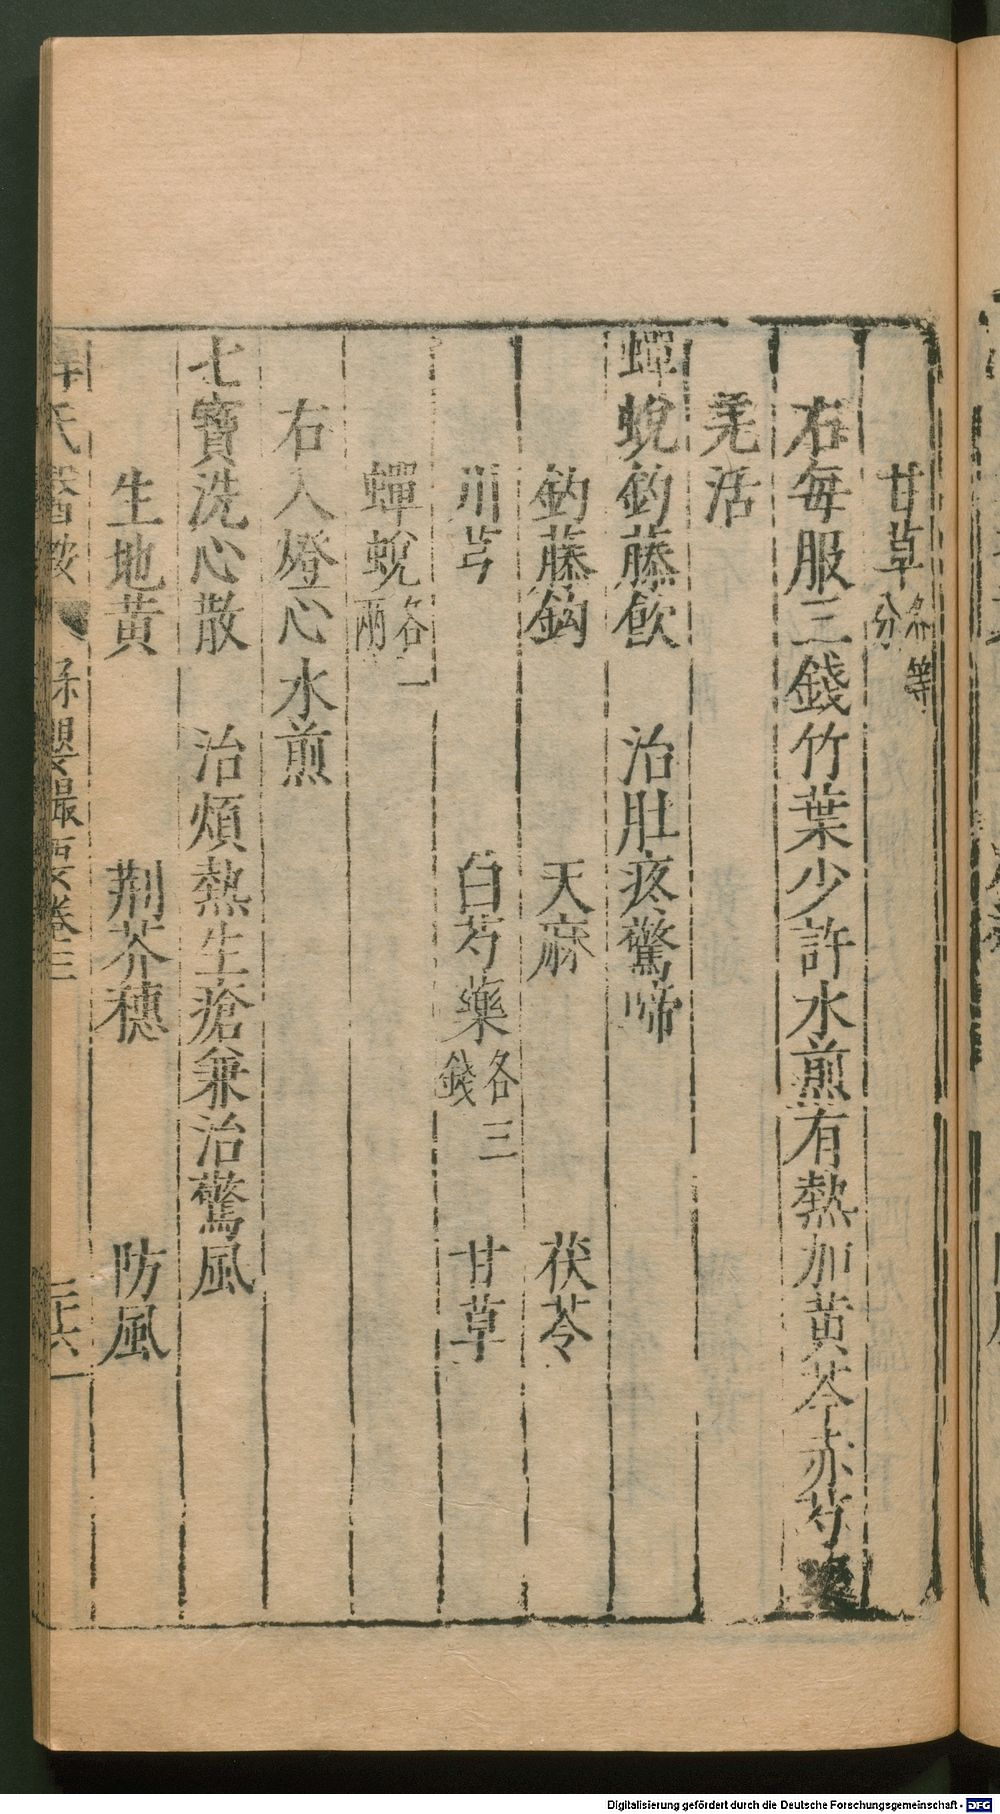 甘草各等分
右每服三錢竹葉少許水煎有熱加黃芩赤芍藥
羌活
蟬蛻鈎藤飲 治肚疼驚啼
鈎藤鈎 天麻 茯苓
川芎 白芍藥各三錢 甘草
蟬蛻各一兩
右入燈心水煎
七寶洗心散 治煩熱生瘡兼治驚風
生地黃 荆芥穗 防風
薛氏醫按 保嬰撮要卷三 二十六
Digitalisierung gefördert durch die Deutsche Forschungsgemeinschaft - DFG